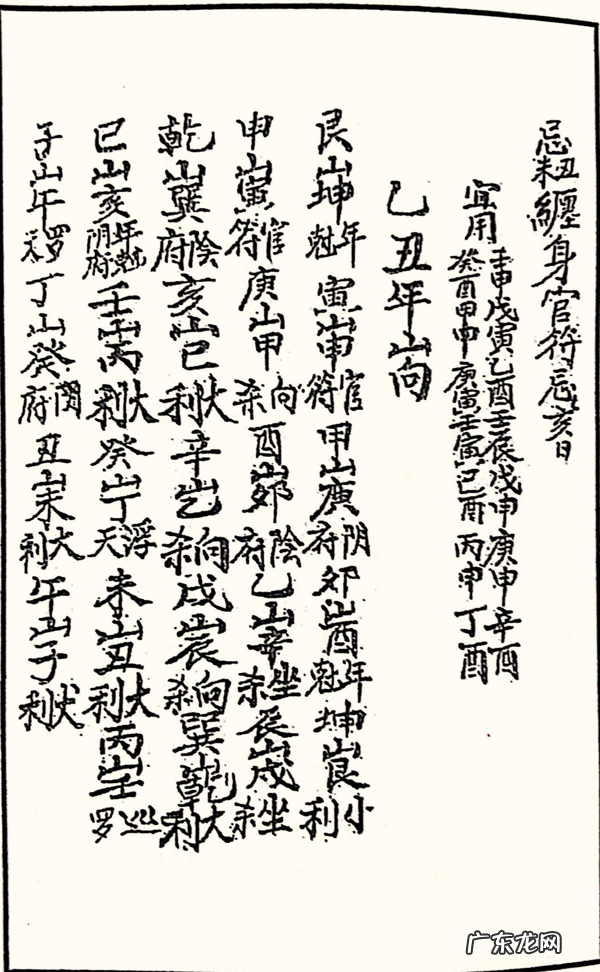 忌丑未纏身官符忌亥日
宜用壬申戊寅乙酉壬辰戊申庚申辛酉
癸酉甲申庚寅壬寅己酉丙申丁酉
乙丑年山向
艮山坤年尅寅山申官符甲山庚阴府卯山酉年尅坤山艮小利
申山寅官符庚山甲向杀酉山卯陰府乙山辛坐杀辰山戌坐杀
乾山巽陰府亥山巳大利辛山乙向杀戌山辰向杀巽山乾大利
巳山亥年尅阴府壬山丙大利癸山丁浮天未山丑大利丙山壬巡罗
子山午罗天丁山癸阴府丑山未大利午山子利
广东龙网